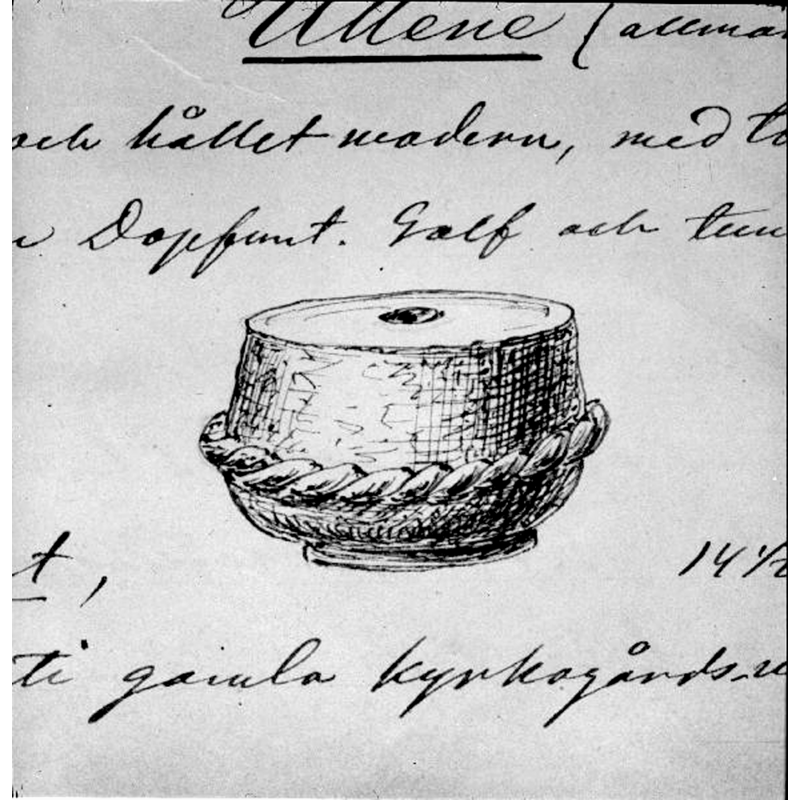 Ullene (allmän
och hållet modern, med to
n Dopfunt. Golf och tun
t, 14 1/2
ti gamla kyrkogårds-